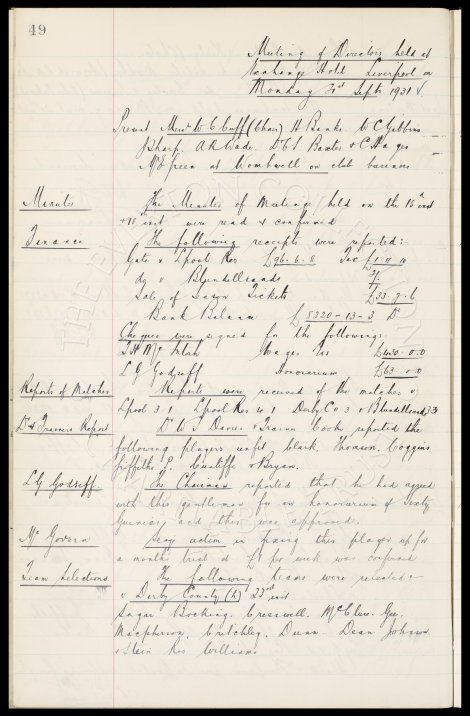 49
Meeting of Directors held at
Exchange Hotel Liverpool on
Monday 21st Septr 1931
Present Messrs W C Cuff (Chair) H Banks W C Gibbins
J Sharp. A R Wade. Dr C S Baxter & C H ages
Mr Green at Wombwell on club business
Minutes
The Minutes of Meetings held on the 15th inst
inst were read & confirmed
Finance
The following receipts were reported:-
Gate v Lpool Res £96-6-8 Tax
do v Blundellsands
Sale of Season Tickets £33-7-6
Bank Balance £8320-13-3 Dr
Cheques were signed for the following:
Wages &c £430-0-0
L G Godreff Honorarium £63-0-0
Reports of Matches
Reports were received of the matches v
Lpool 3 1 Lpool Res 4 1 Derby Co 3 v Blundellsands 3 3
Dr & Trainers Report
Dr W J Davies & Trainers book reported the
following players unfit Clark, Thomson, Coggins
Griffiths P. Cunliffe & Bryan.
L G Godreff.
The Chairman reported that he had agreed
with this gentleman for an honorarium of Sixty
Guineas and this was approved.
Mc Govern
Secys action in fixing this player up for
a months trial at per week was confirmed
Team Selections
The following teams were selected:-
v Derby County (h) inst
Sagar Bocking. Cresswell. McClure. Gee.
Macpherson, Critchley. Dunn. Dean Johnson
& Stein Res Williams